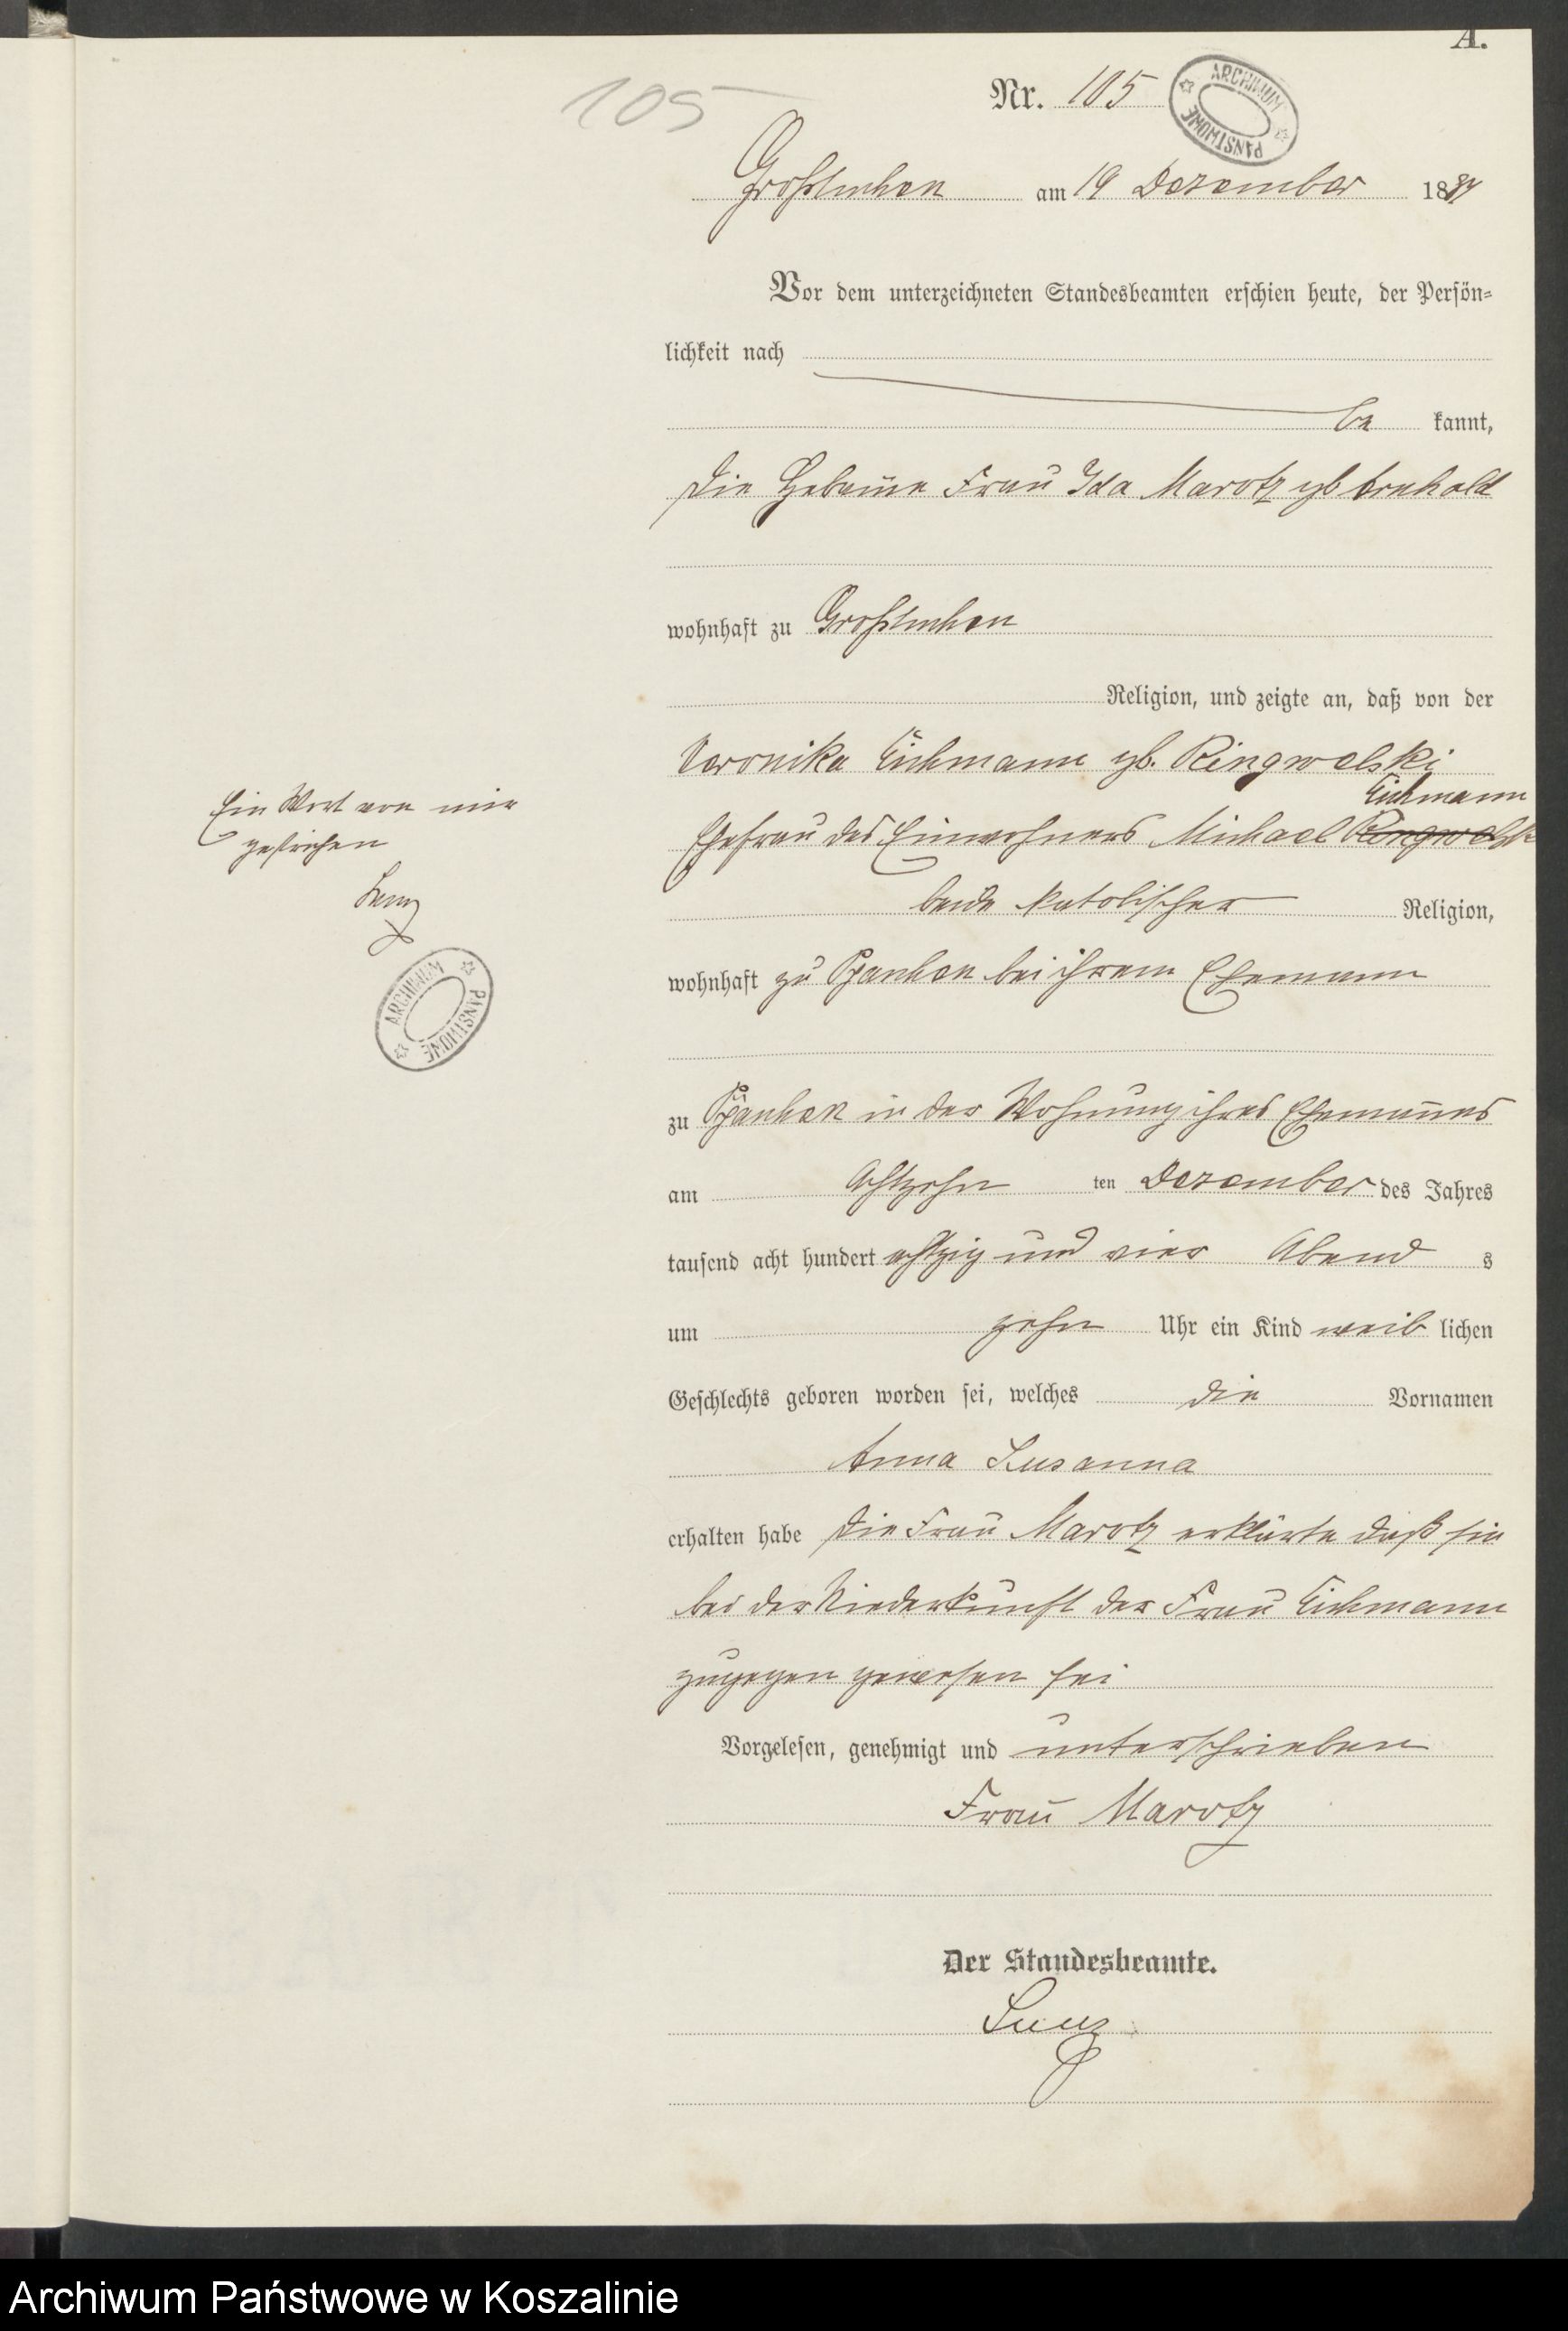 A.
105
Nr. 105
ARCHIWUM PAŃSTWOWE
am 19 Dezember 1884
Vor dem unterzeichneten Standesbeamten erschien heute, der Persön-
lichkeit nach
be kannt,
die Hebame Frau Ida Marotz gb
wohnhaft zu
Religion, und zeigte an, daß von der
Veronika Eichmann gb. Ringwelski
Eichmann
Ehefrau des Einwohners Michael Ringwelski
beide katolischer Religion,
wohnhaft zu bei ihrem Ehemann
zu in der Wohnung ihres Ehemannes
am Achtzehn ten Dezember des Jahres
tausend acht hundert achtzig und vier Abend s
um zehn Uhr ein Kind weib lichen
Geschlechts geboren worden sei, welches die Vornamen
Anna Susanna
erhalten habe die Frau Marotz erklärte daß sie
bei der Niederkunft der Frau Eichmann
zugegen gewesen sei
Vorgelesen, genehmigt und unterschrieben
Frau Marotz
Der Standesbeamte.
Ein Wort von mir
gestrichen
ARCHIWUM PAŃSTWOWE
Archiwum Państwowe w Koszalinie